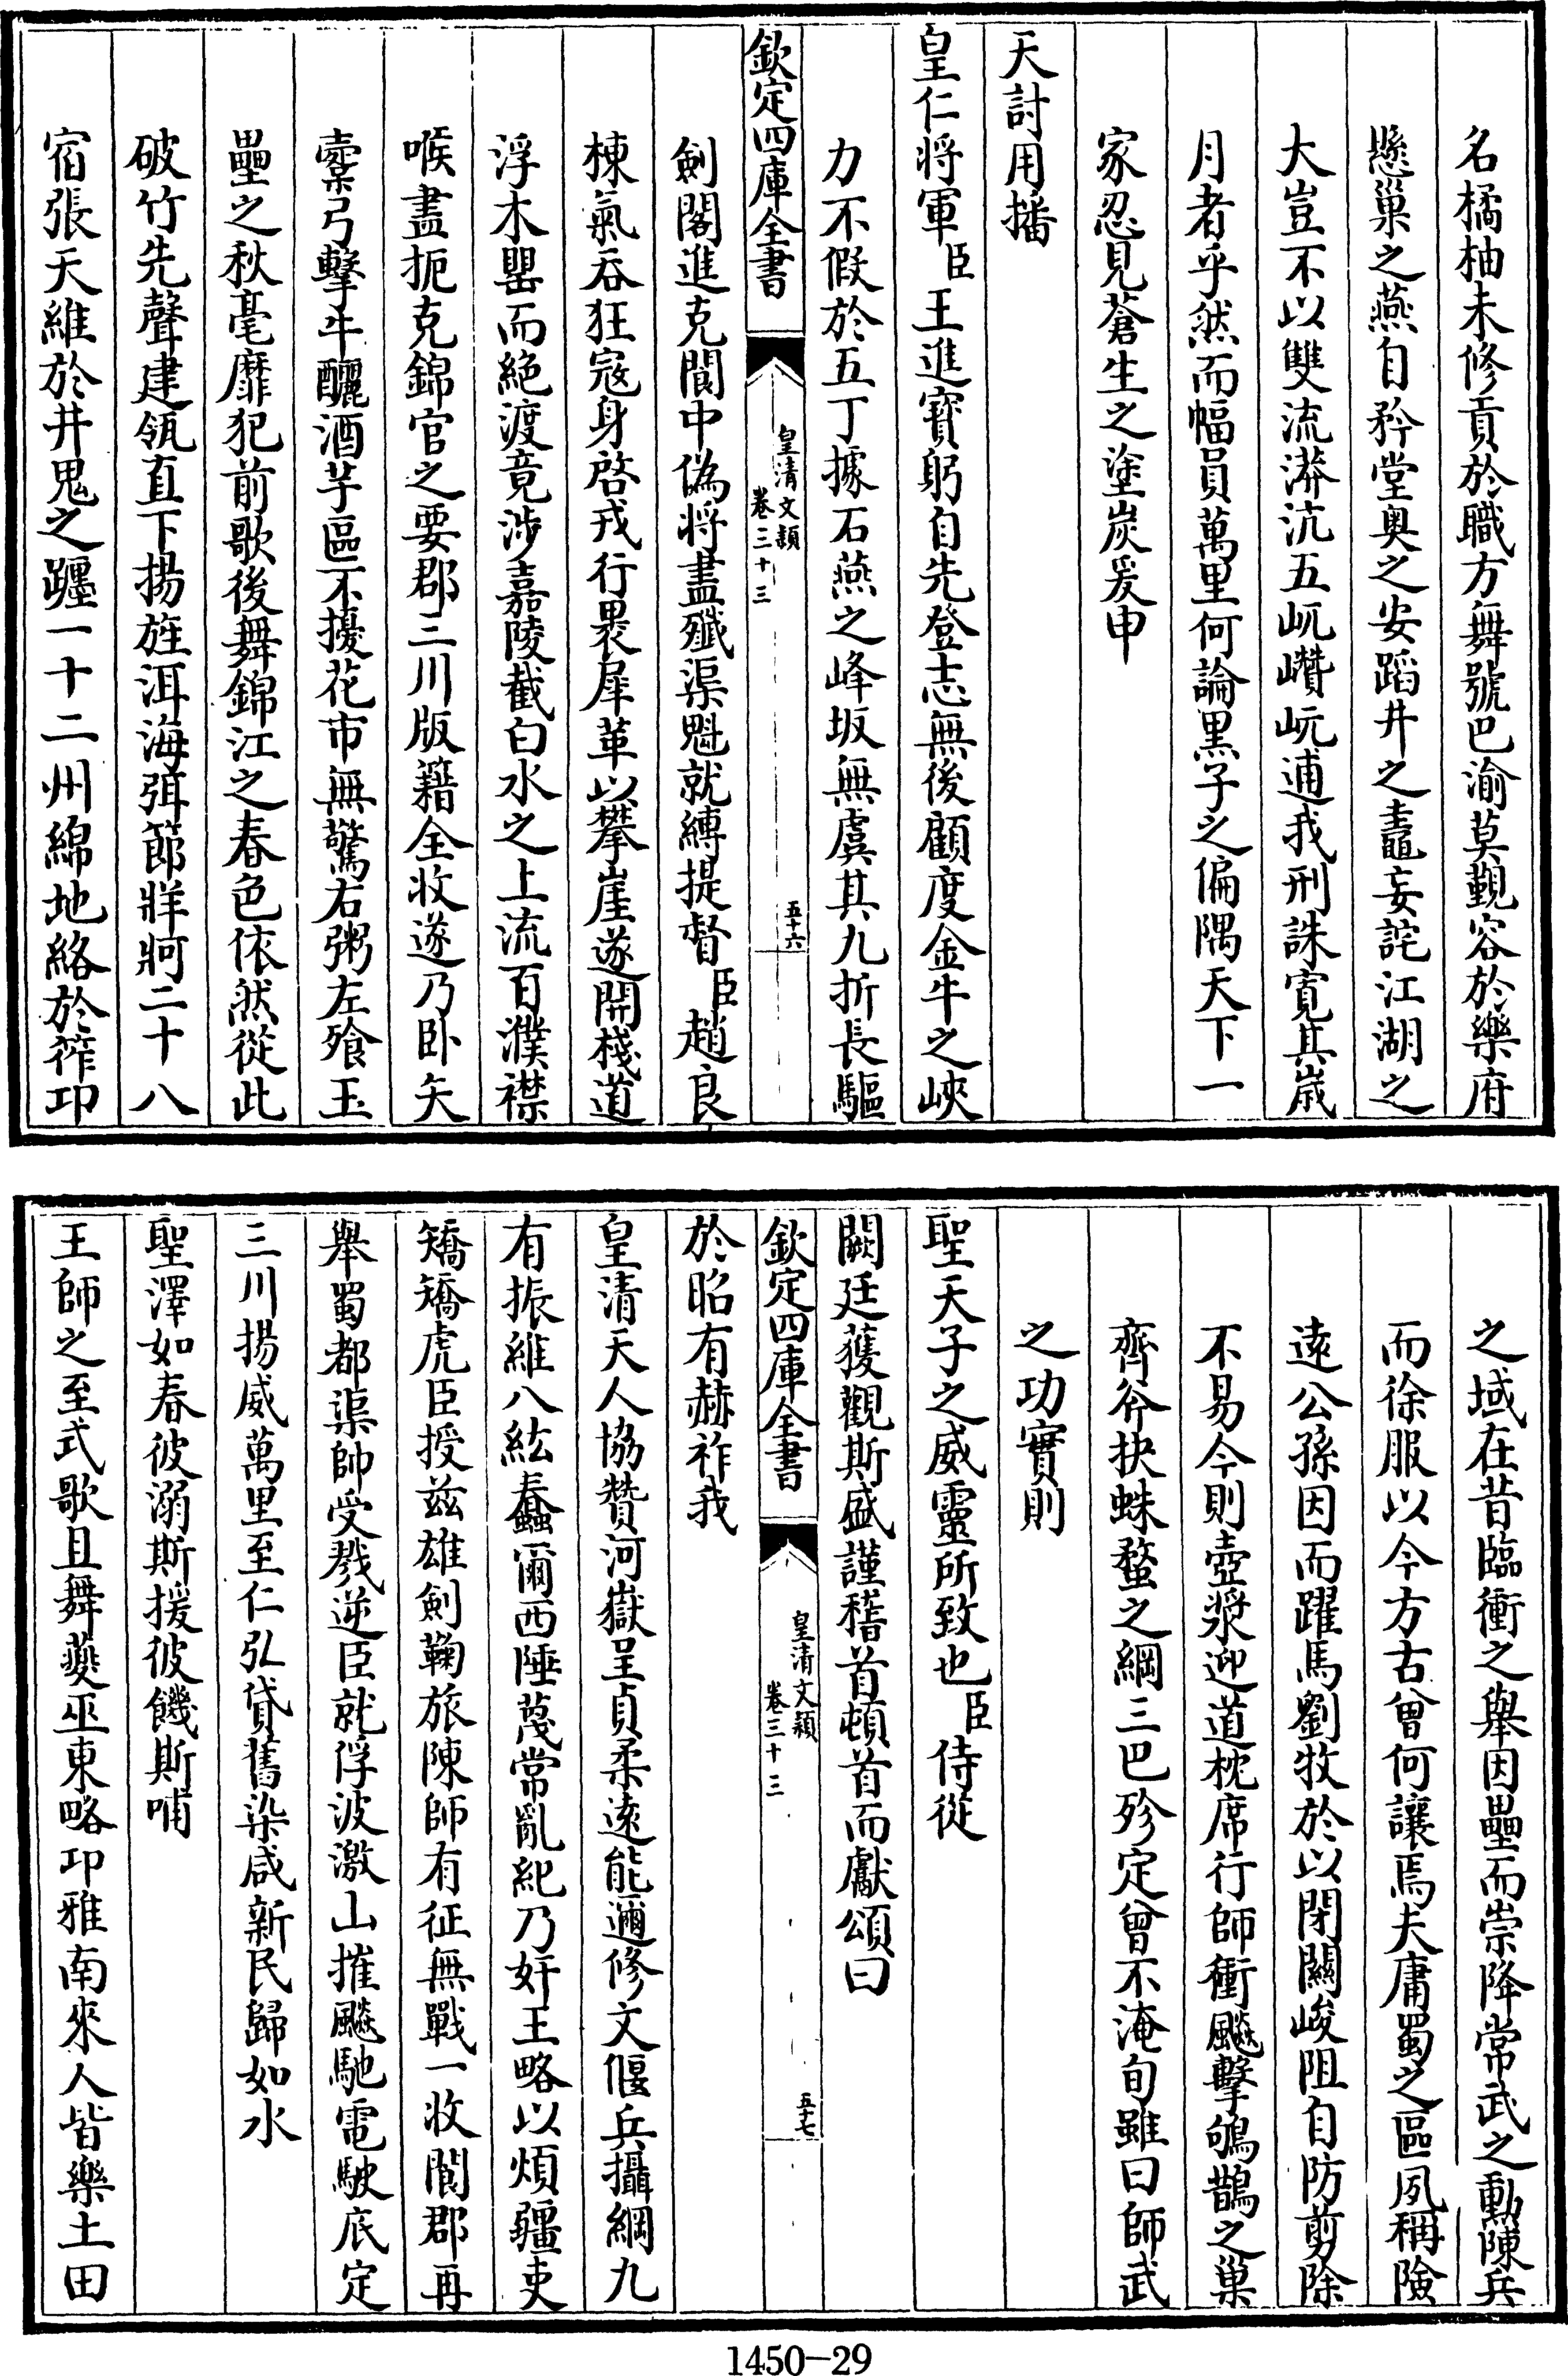 名橘柚未修貢於職方舞號巴渝莫覲容於樂府
懸巢之燕自矜堂奥之安蹈井之鼃妄詫江湖之
大豈不以雙流漭沆五屼巑岏逋我刑誅寛其歳
月者乎然而幅員萬里何論黒子之偏隅天下一
家忍見蒼生之塗炭爰申
天討用播
皇仁将軍臣王進寳躬自先登志無後顧度金牛之峽
力不假於五丁據石燕之峰坂無虞其九折長驅
欽定四庫全書
皇清文穎
卷三十三
五十六
劍閣進克閬中偽将盡殲渠魁就縛提督臣趙良
棟氣吞狂寇身啓戎行褁犀革以攀崖遂開棧道
浮木罌而絶渡竟涉嘉陵截白水之上流百濮襟
喉盡扼克錦官之要郡三川版籍全收遂乃卧矢
櫜弓撃牛釃酒芋區不擾花市無驚右粥左飱玉
壘之秋毫靡犯前歌後舞錦江之春色依然從此
破竹先聲建瓴直下揚旌洱海弭節牂牁二十八
宿張天維於井鬼之躔一十二州綿地絡於筰卭
之域在昔臨衝之舉因壘而崇降常武之勳陳兵
而徐服以今方古曾何讓焉夫庸蜀之區夙稱險
遠公孫因而躍馬劉牧於以閉關峻阻自防剪除
不易今則壺漿迎道枕席行師衝飈擊鴝鵲之巢
齊斧抉蛛蝥之網三巴殄定曾不淹旬雖曰師武
之功實則
聖天子之威靈所致也臣侍從
闕廷獲觀斯盛謹稽首頓首而獻頌曰
欽定四庫全書
皇清文穎
卷三十三
五十七
於昭有赫祚我
皇清天人協贊河嶽呈貞柔遠能邇修文偃兵攝綱九
有振維八紘蠢爾西陲蔑常亂紀乃奸王略以煩疆吏
矯矯虎臣授兹雄劍鞠旅陳師有征無戰一收閬郡再
舉蜀都渠帥受戮逆臣就俘波激山摧飈馳電駛底定
三川揚威萬里至仁弘貸舊染咸新民歸如水
聖澤如春彼溺斯援彼饑斯哺
王師之至式歌且舞夔巫東略卭雅南來人皆樂土田
1450-29